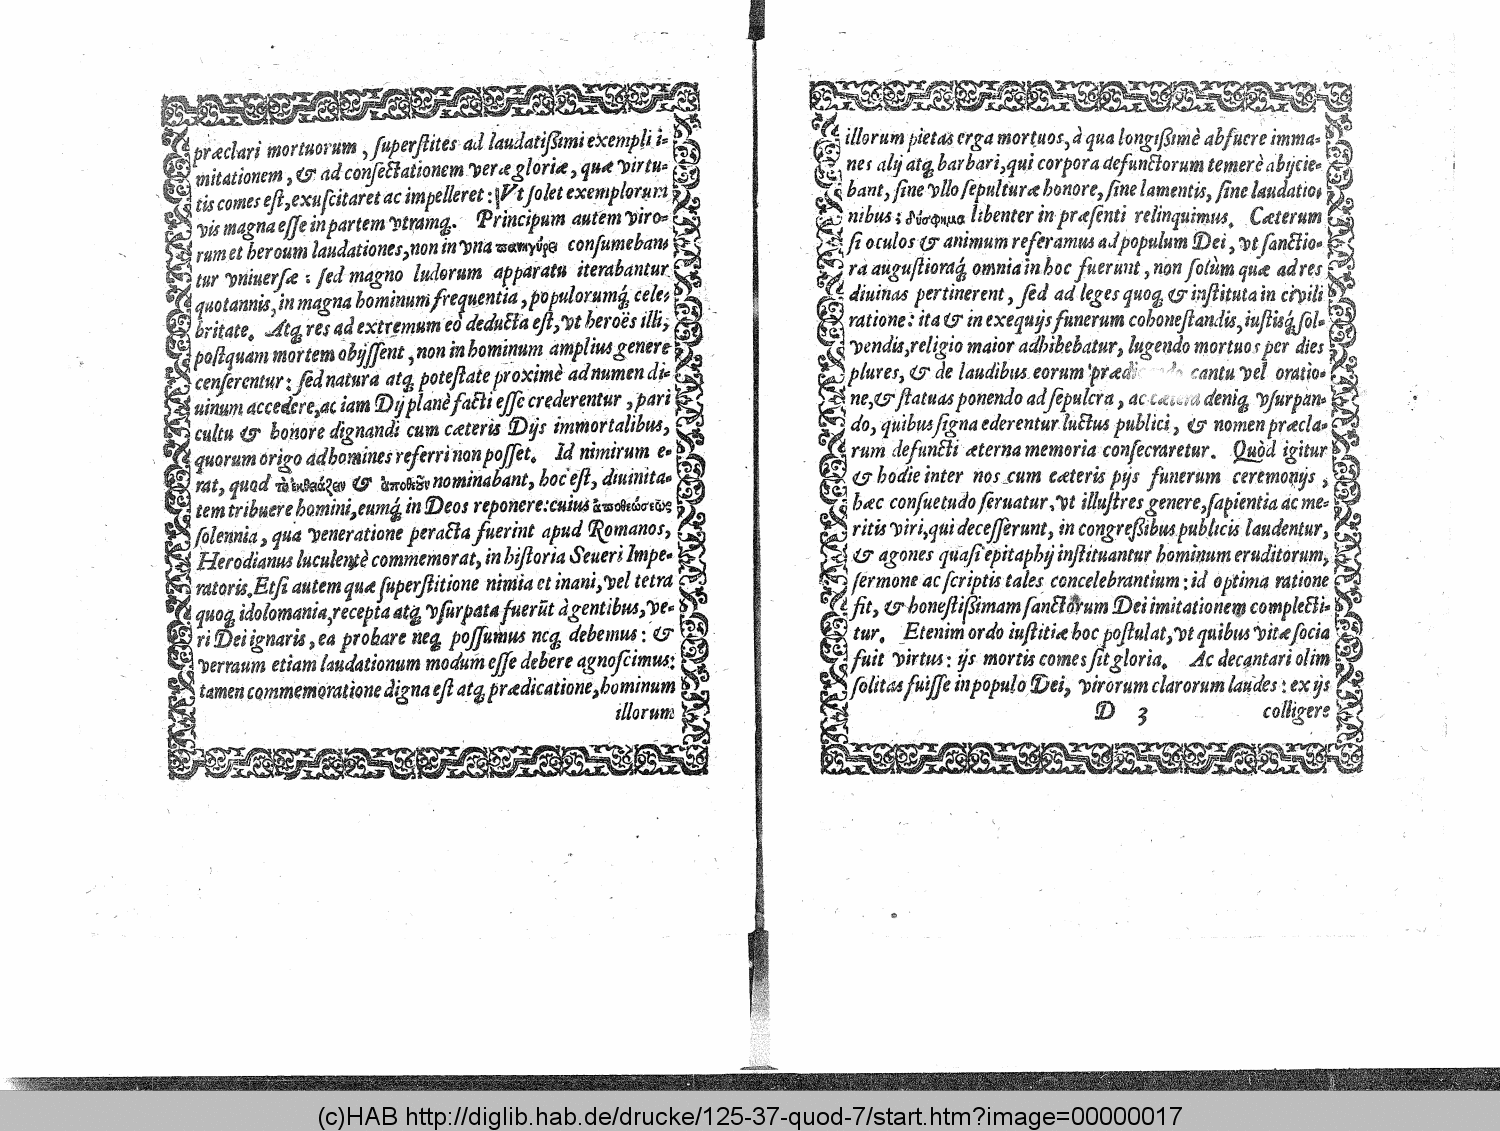 præclari mortuorum, ſuperſtites ad laudatiſsimi exempli i-
mitationem, & ad conſectationem veræ gloriæ, quæ virtu-
tis comes eſt, exuſcitaret ac impelleret: Vt ſolet exemplorum
vis magna eſſe in partem vtramq́;. Principum autem viro-
rum et heroum laudationes, non in vna πανηγύρει conſumeban-
tur vniuerſæ: ſed magno ludorum apparatu iterabantur
quotannis, in magna hominum frequentia, populorumq́; cele-
britate. Atq; res ad extremum eò deducta eſt, vt heroës illi,
poſtquam mortem obijſſent, non in hominum amplius genere
cenſerentur: ſed natura atq; poteſtate proximè ad numen di-
uinum accedere, ac iam Dij planè facti eſſe crederentur, pari
cultu & honore dignandi cum cæteris Dijs immortalibus,
quorum origo ad homines referri non poſſet. Id nimirum e-
rat, quod & nominabant, hoc eſt, diuinita-
tem tribuere homini, eumq́; in Deos reponere: cuius ἀποθεώσεως
ſolennia, qua veneratione peracta fuerint apud Romanos,
Herodianus luculentè commemorat, in hiſtoria Seueri Impe-
ratoris. Etſi autem quæ ſuperſtitione nimia et inani, vel tetra
quoq; idolomania, recepta atq; vſurpata fuerūt à gentibus, ve-
ri Dei ignaris, ea probare neq; poſſumus neq; debemus: &
verum etiam laudationum modum eſſe debere agnoſcimus:
tamen commemoratione digna eſt atq; prædicatione, hominum
illorum
illorum pietas erga mortuos, à qua longiſsimè abfuere imma-
nes alij atq; barbari, qui corpora defunctorum temerè abijcie-
bant, ſine vllo ſepulturæ honore, ſine lamentis, ſine laudatio-
nibus; δύσφημα libenter in præſenti relinquimus. Cæterum
ſi oculos & animum referamus ad populum Dei, vt ſanctio-
ra auguſtioraq́; omnia in hoc fuerunt, non ſolùm quæ ad res
diuinas pertinerent, ſed ad leges quoq; & inſtituta in civili
ratione: ita & in exequijs funerum cohoneſtandis, iuſtisq́; ſol-
vendis, religio maior adhibebatur, lugendo mortuos per dies
plures, & de laudibus eorum cantu vel oratio-
ne, & ſtatuas ponendo ad ſepulcra, ac cætera deniq; vſurpan-
do, quibus ſigna ederentur luctus publici, & nomen præcla-
rum defuncti æterna memoria conſecraretur. Quòd igitur
& hodie inter nos cum cæteris pijs funerum ceremonijs,
hæc conſuetudo ſeruatur, vt illuſtres genere, ſapientia ac me-
ritis viri, qui deceſſerunt, in congreſsibus publicis laudentur,
& agones quaſi epitaphij inſtituantur hominum eruditorum,
ſermone ac ſcriptis tales concelebrantium: id optima ratione
fit, & honeſtiſsimam ſanctorum Dei imitationem complecti-
tur. Etenim ordo iuſtitiæ hoc poſtulat, vt quibus vitæ ſocia
fuit virtus: ijs mortis comes ſit gloria. Ac decantari olim
ſolitas fuiſſe in populo Dei, virorum clarorum laudes: ex ijs
D 3 colligere
(c)HAB http://diglib.hab.de/drucke/125-37-quod-7/start.htm?image=00000017